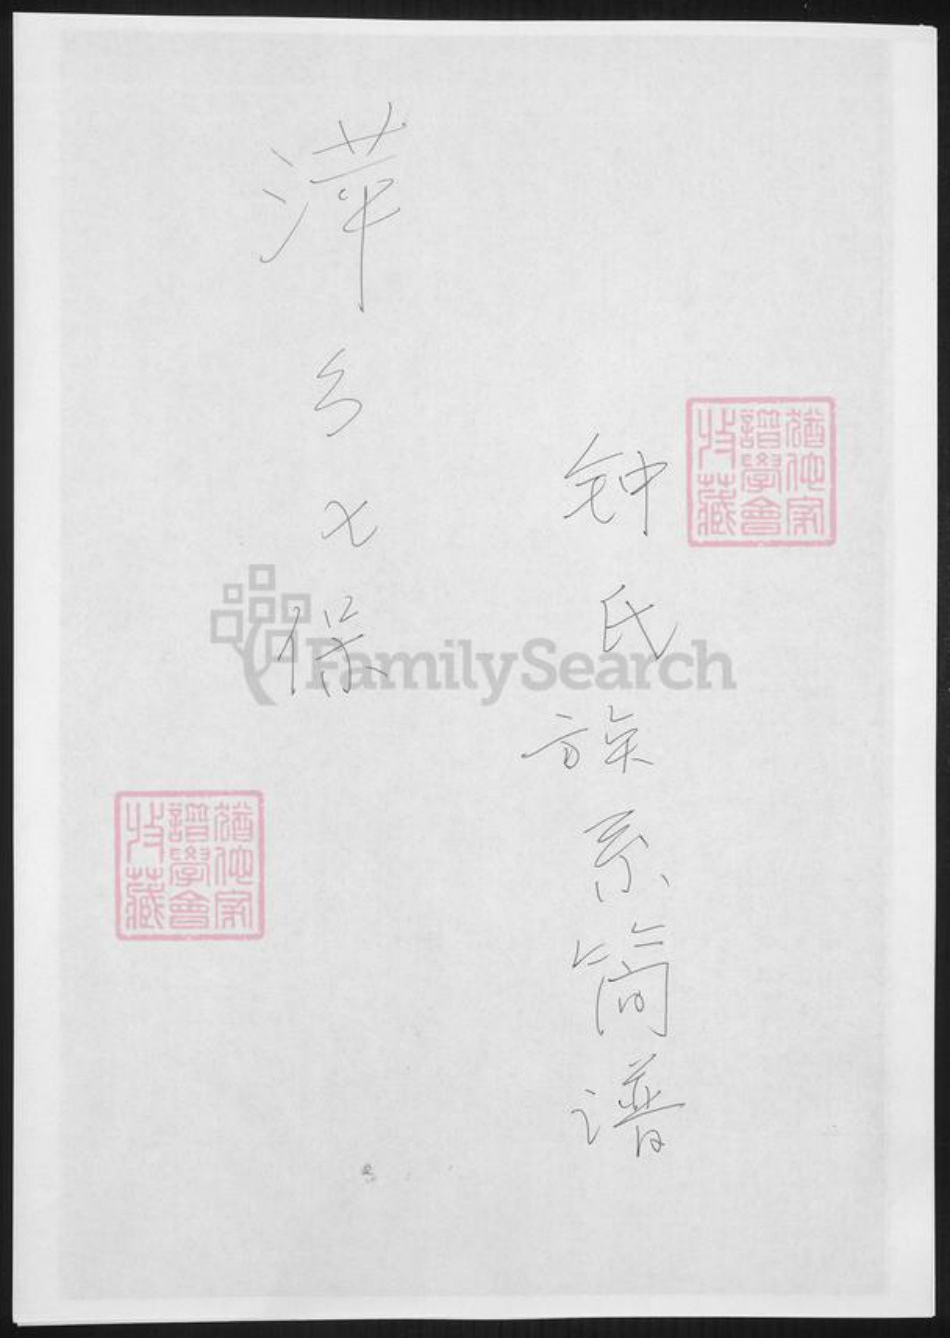 钟氏族系简谱
萍乡七保
猶他家
譜學會
收藏
猶他家
譜學會
收藏
FamilySearch